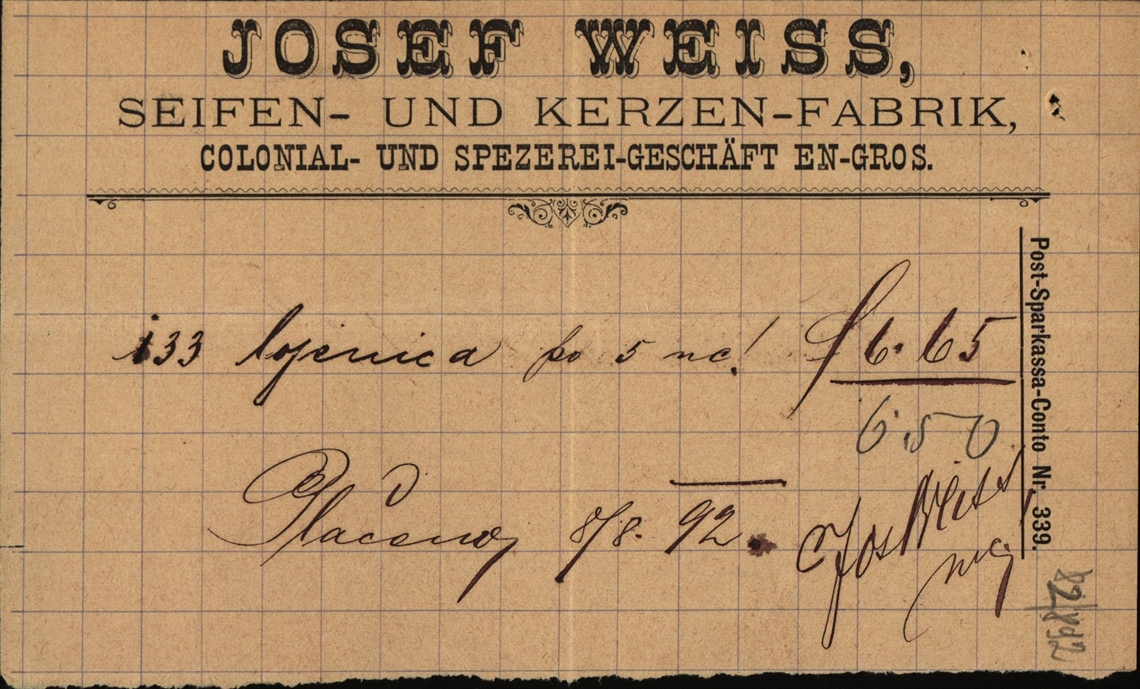 JOSEF WEISS,
SEIFEN- UND KERZEN-FABRIK,
COLONIAL- UND SPEZEREI-GESCHÄFT EN-GROS.
Post-Sparkassa-Conto Nr. 339.
133 lojenica po 5 nč. f 6.65
6.50
Plačeno 8/8. 92.
Jos Weiss
82/892